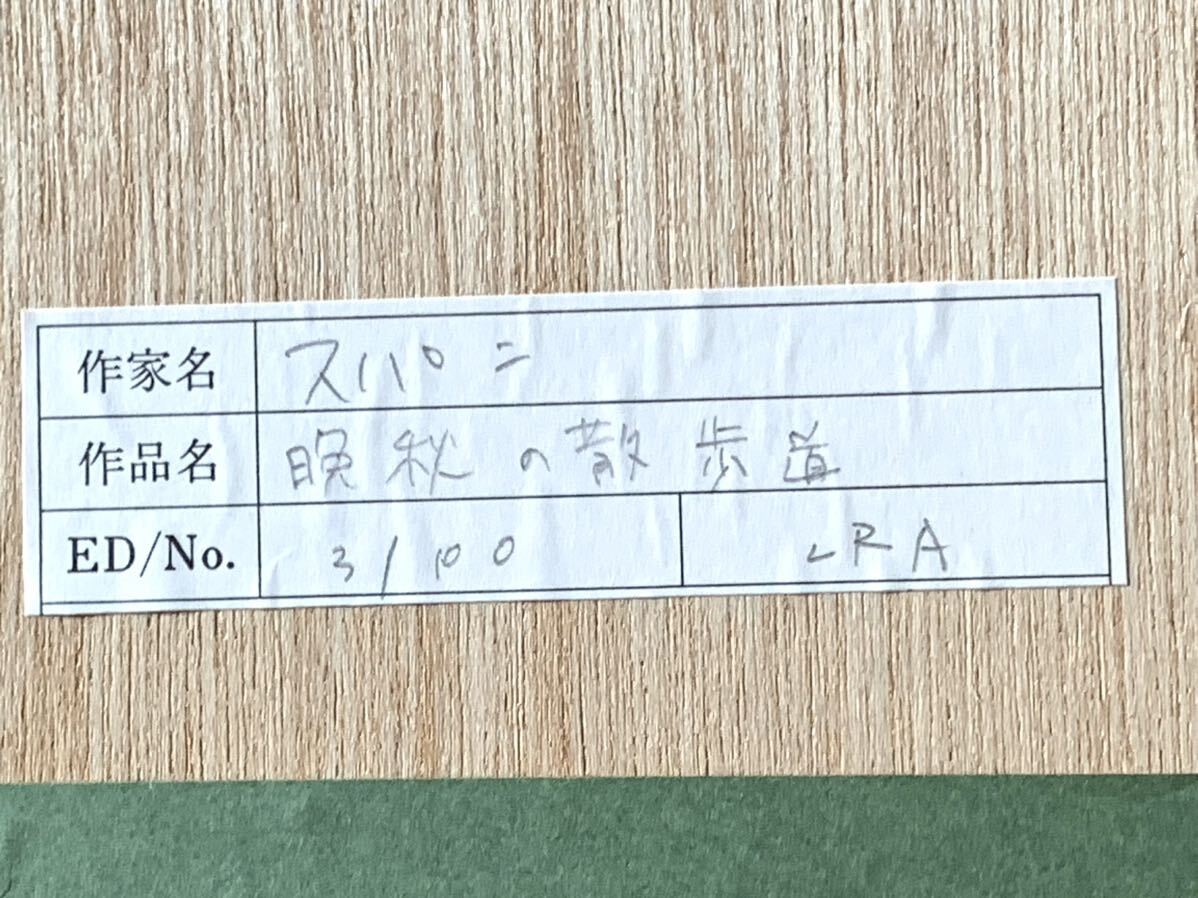 作家名 スパニ
作品名 晩秋の散歩道
ED/No. 3/100 LRA